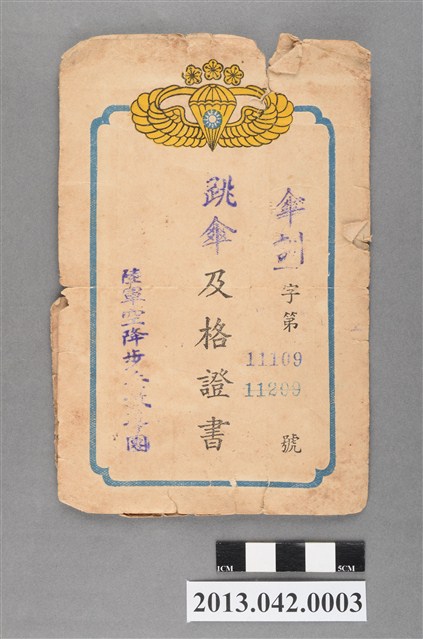 傘訓字第11109
11209號
跳傘及格證書
陸軍空降步兵教導團
1CM
5CM
2013.042.0003